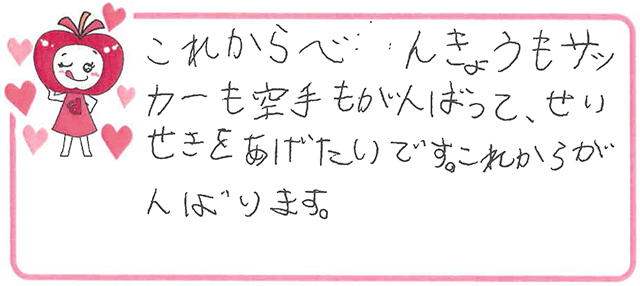 これからべ んきょうもサッ
カーも空手もがんばって、せい
せきをあげたいです。これからが
んばります。